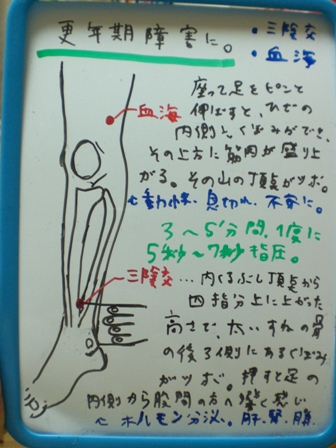 更年期障害に。
・三陰交
・血海
血海
座って足をピンと
伸ばすと、ひざの
内側にくぼみができ、
その上方に筋肉が盛り上
がる。その山の頂点がツボ。
動悸、息切れ、不安に。
3〜5分間、1度に
5秒〜7秒指圧。
三陰交…内くるぶし頂点から
四指分上に上がった
高さで、太いすねの骨
の後ろ側にあるくぼみ
がツボ。押すと足の
内側から股間の方へ響く感じ
ホルモン分泌、肝、腎、脾